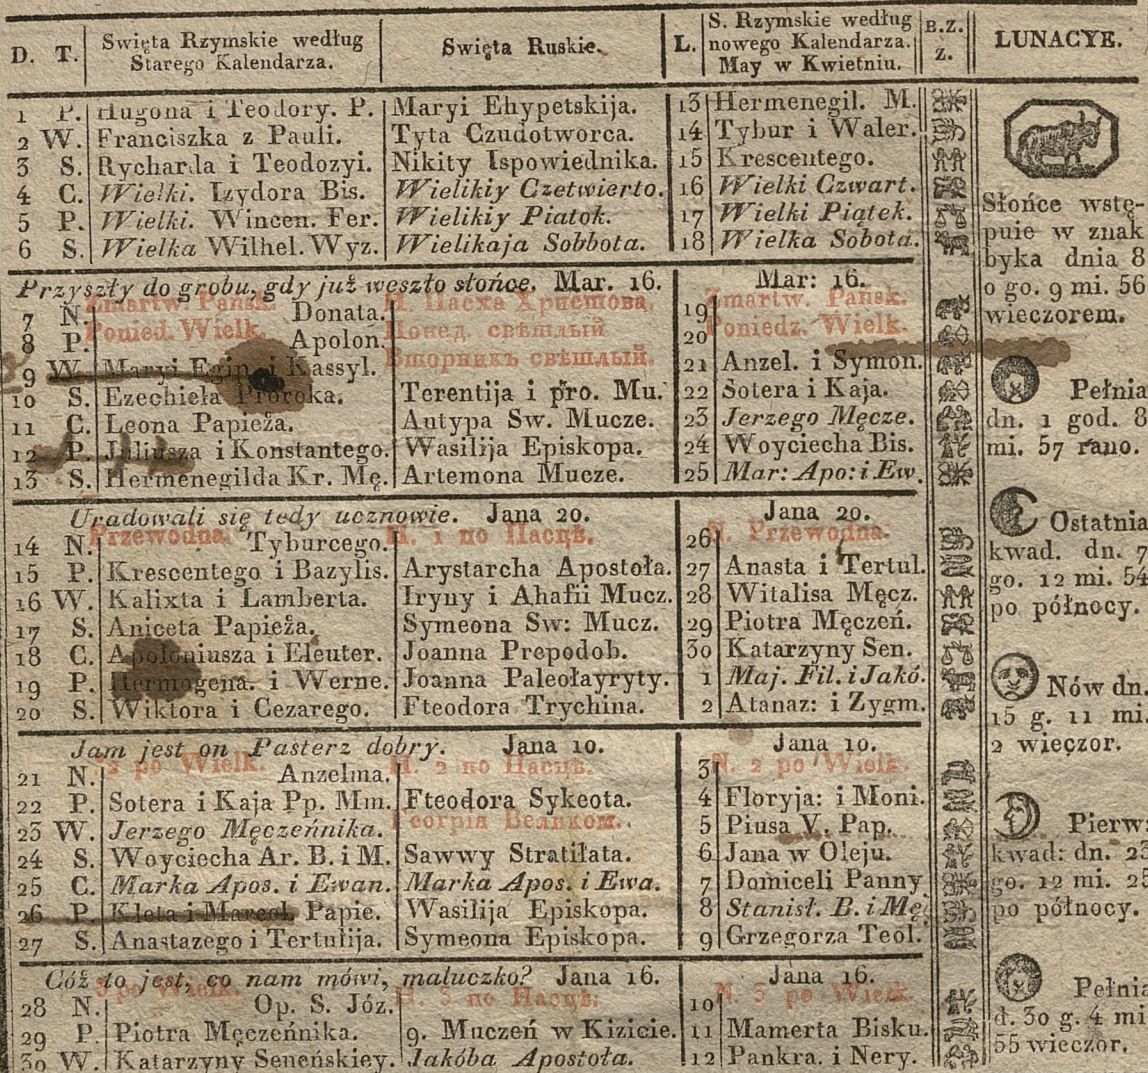 D. T. Swięta Rzymskie według Starego Kalendarza. Swięta Ruskie. L. S. Rzymskie według nowego Kalendarza. May w Kwietniu. B.Z. Z. LUNACYE.
1 P. Hugona i Teodory. P. Maryi Ehypetskija. 13 Hermenegil. M.
2 W. Franciszka z Pauli. Tyta Czudotworca. 14 Tybur i Waler.
3 S. Rycharda i Teodozyi. Nikity Ispowiednika. 15 Krescentego.
4 C. Wielki. Izydora Bis. Wielikiy Czetwierto. 16 Wielki Czwart.
5 P. Wielki. Wincen. Fer. Wielikiy Piatok. 17 Wielki Piątek.
6 S. Wielka Wilhel. Wyz. Wielikaja Sobbota. 18 Wielka Sobota.
Przyszły do grobu, gdy już weszło słońce. Mar. 16. Mar: 16.
7 N. Zmartw. Pańsk. Donata. Н. Пасха Христова. 19 Zmartw. Pańsk.
8 P. Ponied. Wielk. Apolon. Понед. свѣтлый 20 Poniedz. Wielk.
9 W. Maryi Egip. i Kassyl. Вторникъ свѣтлый. 21 Anzel. i Symon.
10 S. Ezechiela Proroka. Terentija i pro. Mu. 22 Sotera i Kaja.
11 C. Leona Papieża. Autypa Sw. Mucze. 23 Jerzego Męcze.
12 P. Juliusza i Konstantego. Wasilija Episkopa. 24 Woyciecha Bis.
13 S. Hermenegilda Kr. Mę. Artemona Mucze. 25 Mar: Apo: i Ew.
Uradowali się tedy ucznowie. Jana 20. Jana 20.
14 N. Przewodna. Tyburcego. Н. 1 по Пасцѣ. 26 N. Przewodna.
15 P. Krescentego i Bazylis. Arystarcha Apostoła. 27 Anasta i Tertul.
16 W. Kalixta i Lamberta. Iryny i Ahafii Mucz. 28 Witalisa Męcz.
17 S. Aniceta Papieża. Symeona Sw: Mucz. 29 Piotra Męczeń.
18 C. Apoloniusza i Eleuter. Joanna Prepodob. 30 Katarzyny Sen.
19 P. Hermogena. i Werne. Joanna Paleołayryty. 1 Maj. Fil. i Jakó.
20 S. Wiktora i Cezarego. Fteodora Trychina. 2 Atanaz: i Zygm.
Jam jest on Pasterz dobry. Jana 10. Jana 10.
21 N. 2 po Wielk. Anzelma. Н. 2 по Пасцѣ. 3 N. 2 po Wielk.
22 P. Sotera i Kaja Pp. Mm. Fteodora Sykeota. 4 Floryja: i Moni.
23 W. Jerzego Męczeńnika. Георгія Великом. 5 Piusa V. Pap.
24 S. Woyciecha Ar. B. i M. Sawwy Stratiłata. 6 Jana w Oleju.
25 C. Marka Apos. i Ewan. Marka Apos. i Ewa. 7 Domiceli Panny
26 P. Kleta i Marcel. Papie. Wasilija Episkopa. 8 Stanisł. B. i Mę.
27 S. Anastazego i Tertulija. Symeona Episkopa. 9 Grzegorza Teol.
Cóż to jest, co nam mówi, maluczko? Jana 16. Jana 16.
28 N. 3 po Wielk. Op. S. Józ. Н. 3 по Пасцѣ. 10 N. 3 po Wielk.
29 P. Piotra Męczeńnika. 9. Muczeń w Kizicie. 11 Mamerta Bisku.
30 W. Katarzyny Seneńskiey. Jakóba Apostoła. 12 Pankra. i Nery.
Słońce wstę-
puie w znak
byka dnia 8
o go. 9 mi. 56
wieczorem.
Pełnia
dn. 1 god. 8
mi. 57 rano.
Ostatnia
kwad. dn. 7
go. 12 mi. 54
po północy.
Nów dn.
15 g. 11 mi.
2 wieczor.
Pierw:
kwad: dn. 23
go. 12 mi. 25
po północy.
Pełnia
d. 30 g. 4 mi
55 wieczor.